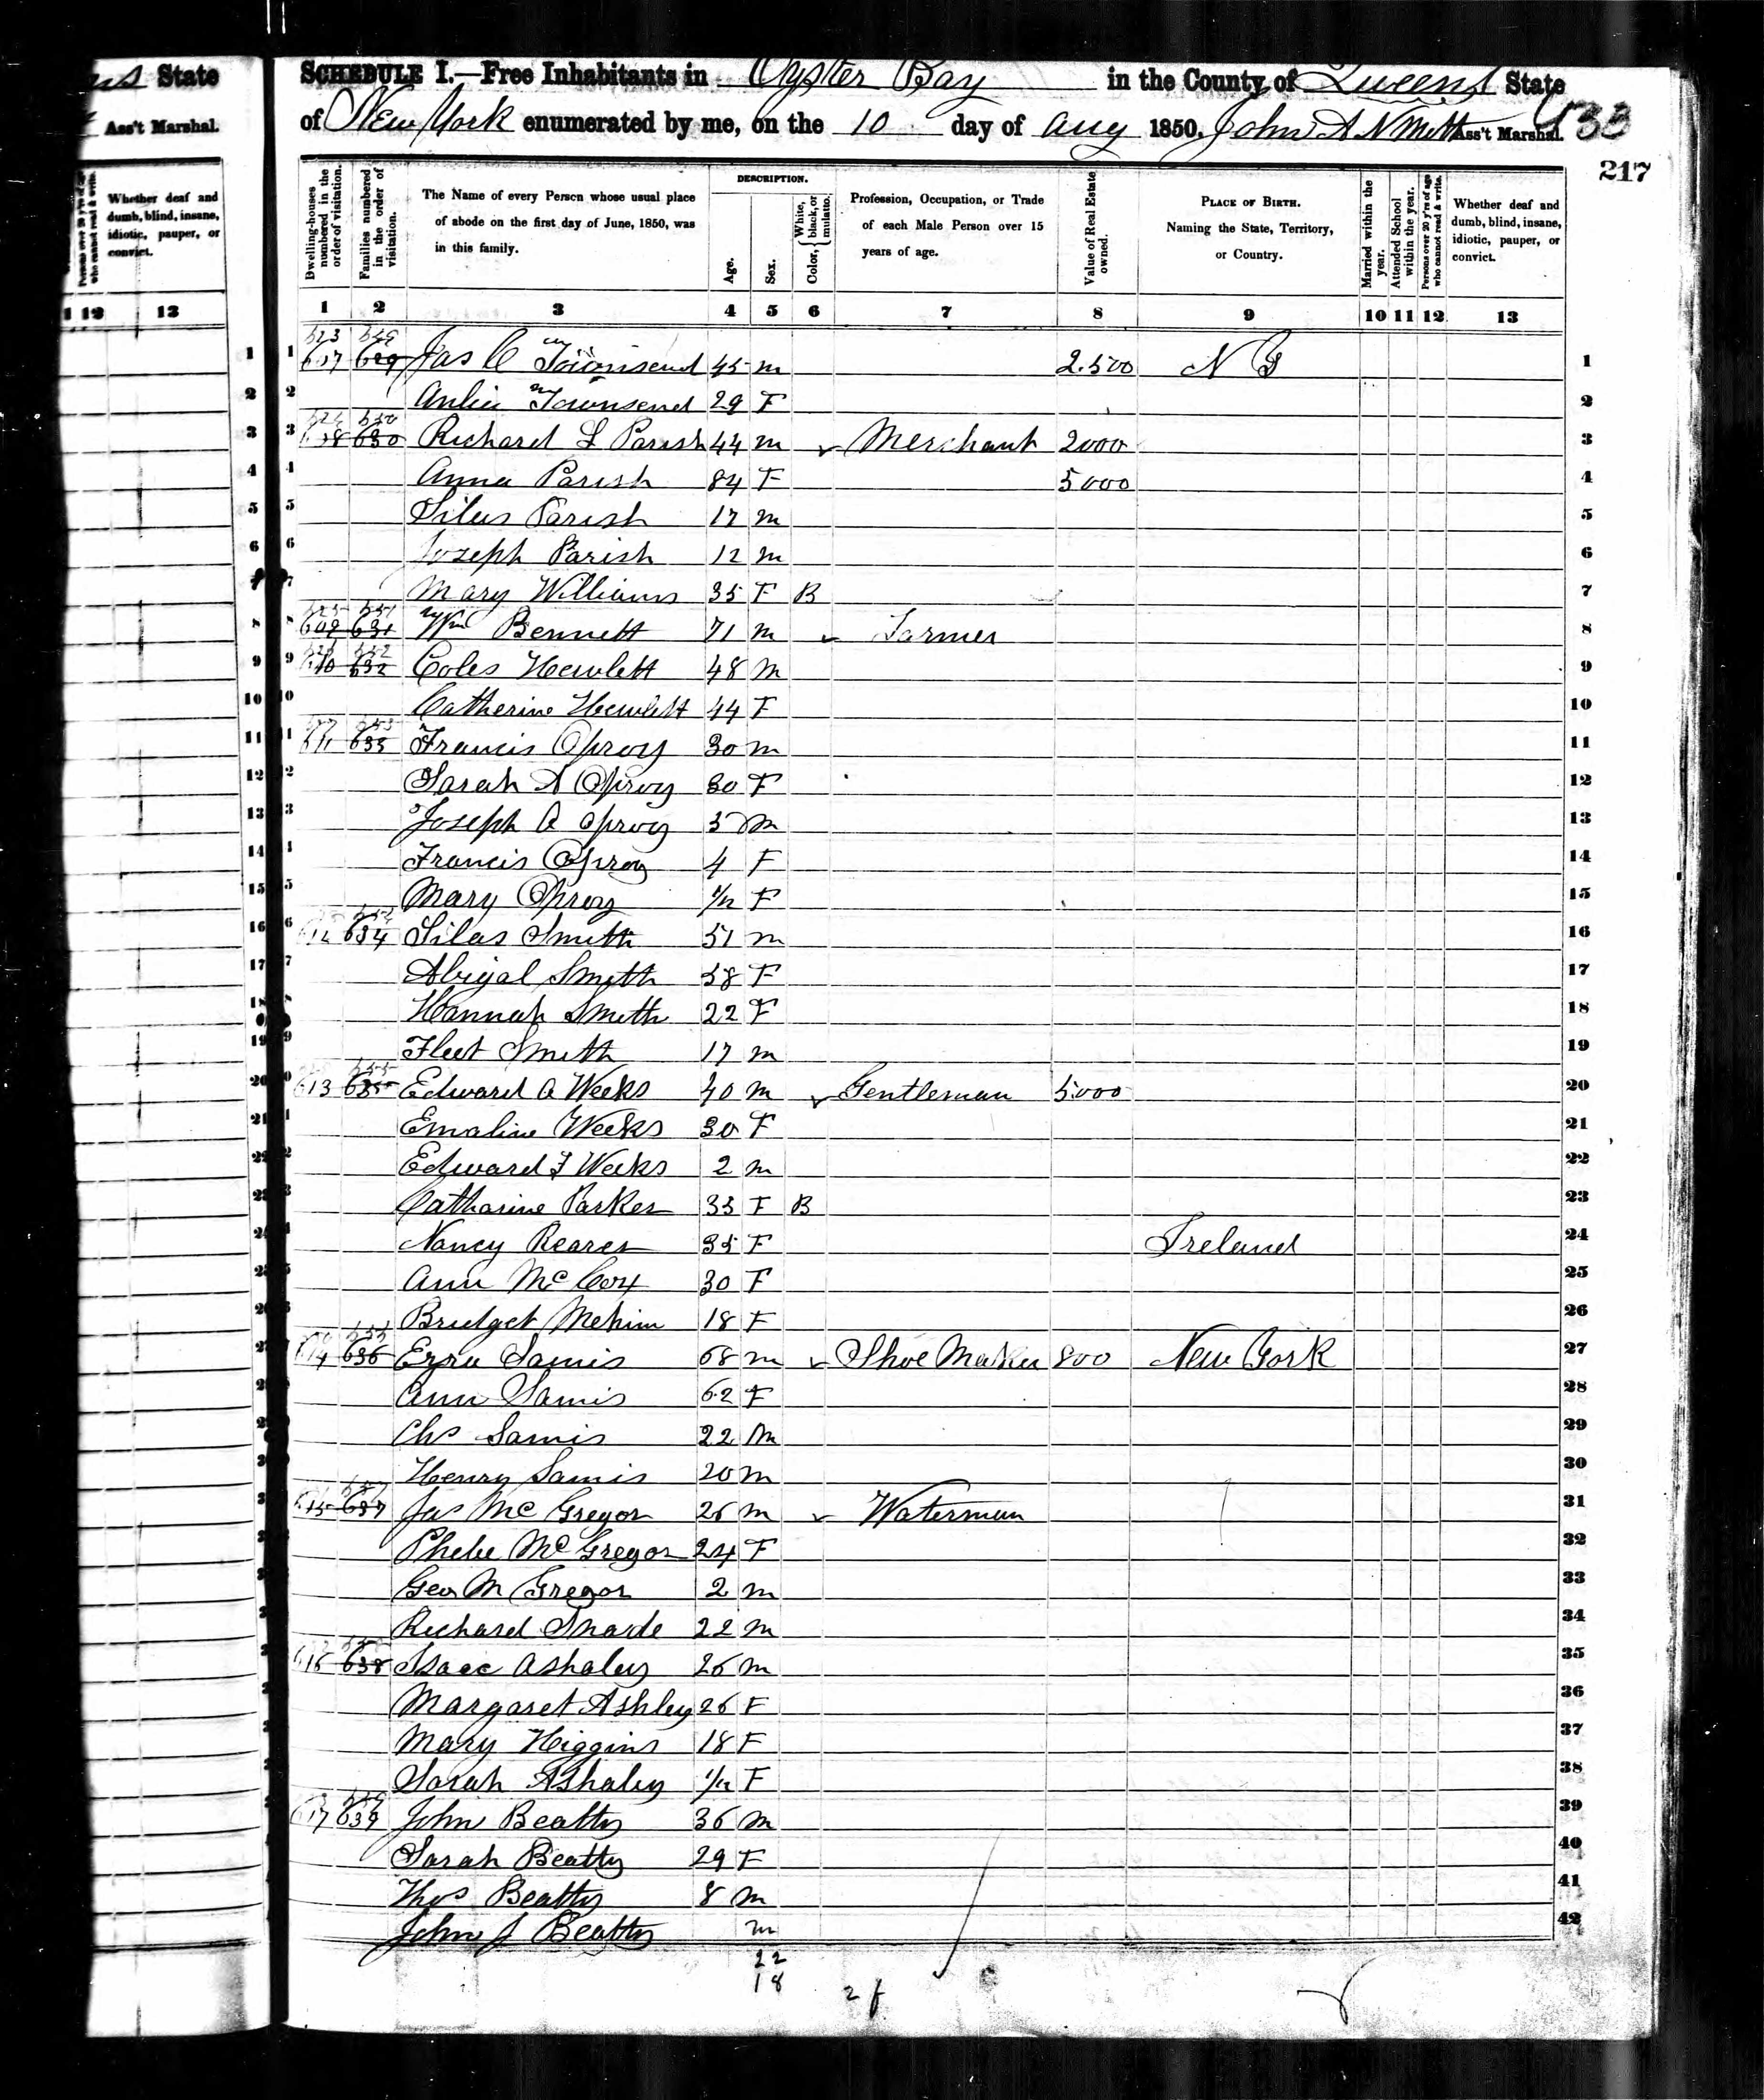 State
Ass't Marshal.
Whether deaf and dumb, blind, insane, idiotic, pauper, or convict.
12 13
SCHEDULE I.—Free Inhabitants in Oyster Bay in the County of Queens State
of New York enumerated by me, on the 10 day of Aug 1850. John A Smith Ass't Marshal. 133
217
Dwelling-houses numbered in the order of visitation.
Families numbered in the order of visitation.
The Name of every Person whose usual place of abode on the first day of June, 1850, was in this family.
DESCRIPTION.
Age.
Sex.
Color, { White, black, or mulatto.
Profession, Occupation, or Trade of each Male Person over 15 years of age.
Value of Real Estate owned.
PLACE OF BIRTH. Naming the State, Territory, or Country.
Married within the year.
Attended School within the year.
Persons over 20 y'rs of age who cannot read & write.
Whether deaf and dumb, blind, insane, idiotic, pauper, or convict.
1 2 3 4 5 6 7 8 9 10 11 12 13
1 607 629 Jas C Townsend 45 m 2.500 N Y 1
2 Townsend 29 F 2
3 608 630 Richard L Parish 44 m Merchant 2000 3
4 Anna Parish 84 F 5000 4
5 Silas Parish 17 m 5
6 Joseph Parish 12 m 6
7 Mary Williams 35 F B 7
8 609 631 Wm Bennett 71 m Farmer 8
9 610 632 Coles Hewlett 48 m 9
10 Catherine Hewlett 44 F 10
11 611 633 Francis 30 m 11
12 Sarah A 30 F 12
13 Joseph A m 13
14 Francis 4 F 14
15 Mary F 15
16 612 634 Silas Smith 51 m 16
17 Abigal Smith 38 F 17
18 Hannah Smith 22 F 18
19 Fleet Smith 17 m 19
20 613 635 Edward A Weeks 40 m Gentleman 5000 20
21 Emaline Weeks 30 F 21
22 Edward F Weeks 2 m 22
23 Catharine Parker 33 F B 23
24 Nancy 35 F Ireland 24
25 Ann McCoy 30 F 25
26 Bridget 18 F 26
27 614 636 Ezra Samis 68 m Shoe Maker 800 New York 27
28 Ann Samis 62 F 28
29 Chs Samis 22 m 29
30 Henry Samis 20 m 30
31 615 637 Jas McGregor 26 m Waterman 31
32 Phebe McGregor 24 F 32
33 Geo M Gregor 2 m 33
34 Richard 22 m 34
35 616 638 Isaac Ashaley 26 m 35
36 Margaret Ashley 26 F 36
37 Mary Higgins 18 F 37
38 Sarah Ashaley F 38
39 617 639 John Beatty 36 m 39
40 Sarah Beatty 29 F 40
41 Thos Beatty 8 m 41
42 John J Beatty m 42
22
18
2f